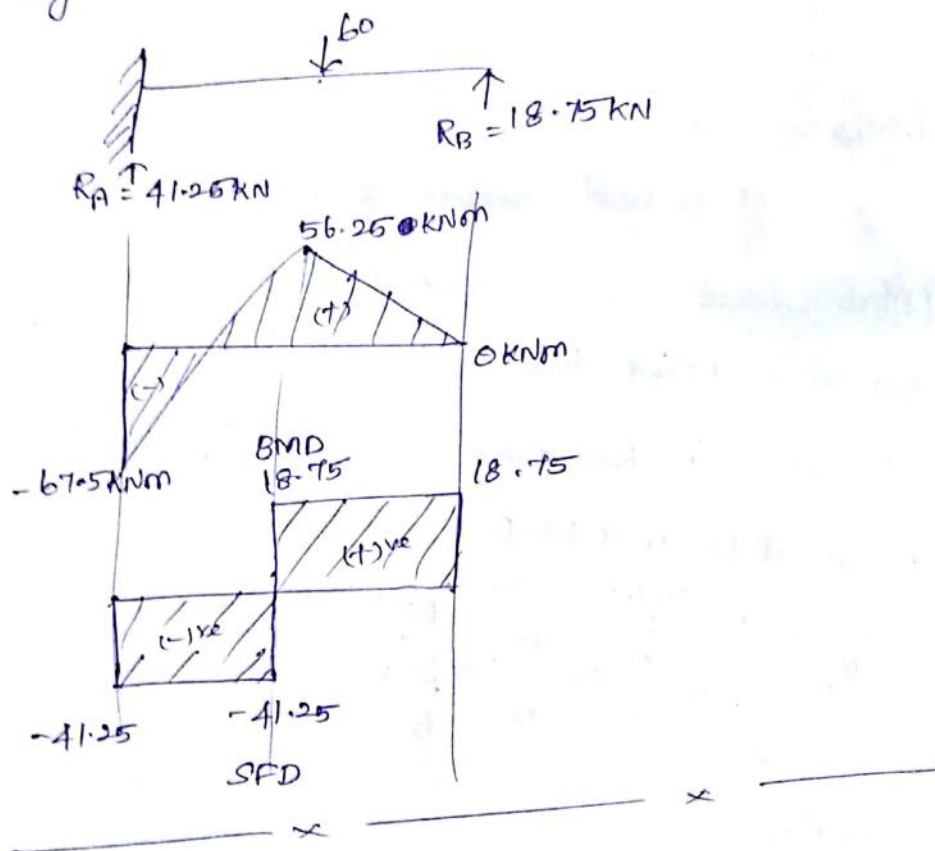 60
R_B = 18.75 KN
R_A = 41.25 KN
56.25 KNm
(+)
0 KNm
(-)
-67.5 KNm
BMD
18.75
18.75
(+)ve
(-)ve
-41.25
-41.25
SFD
x x